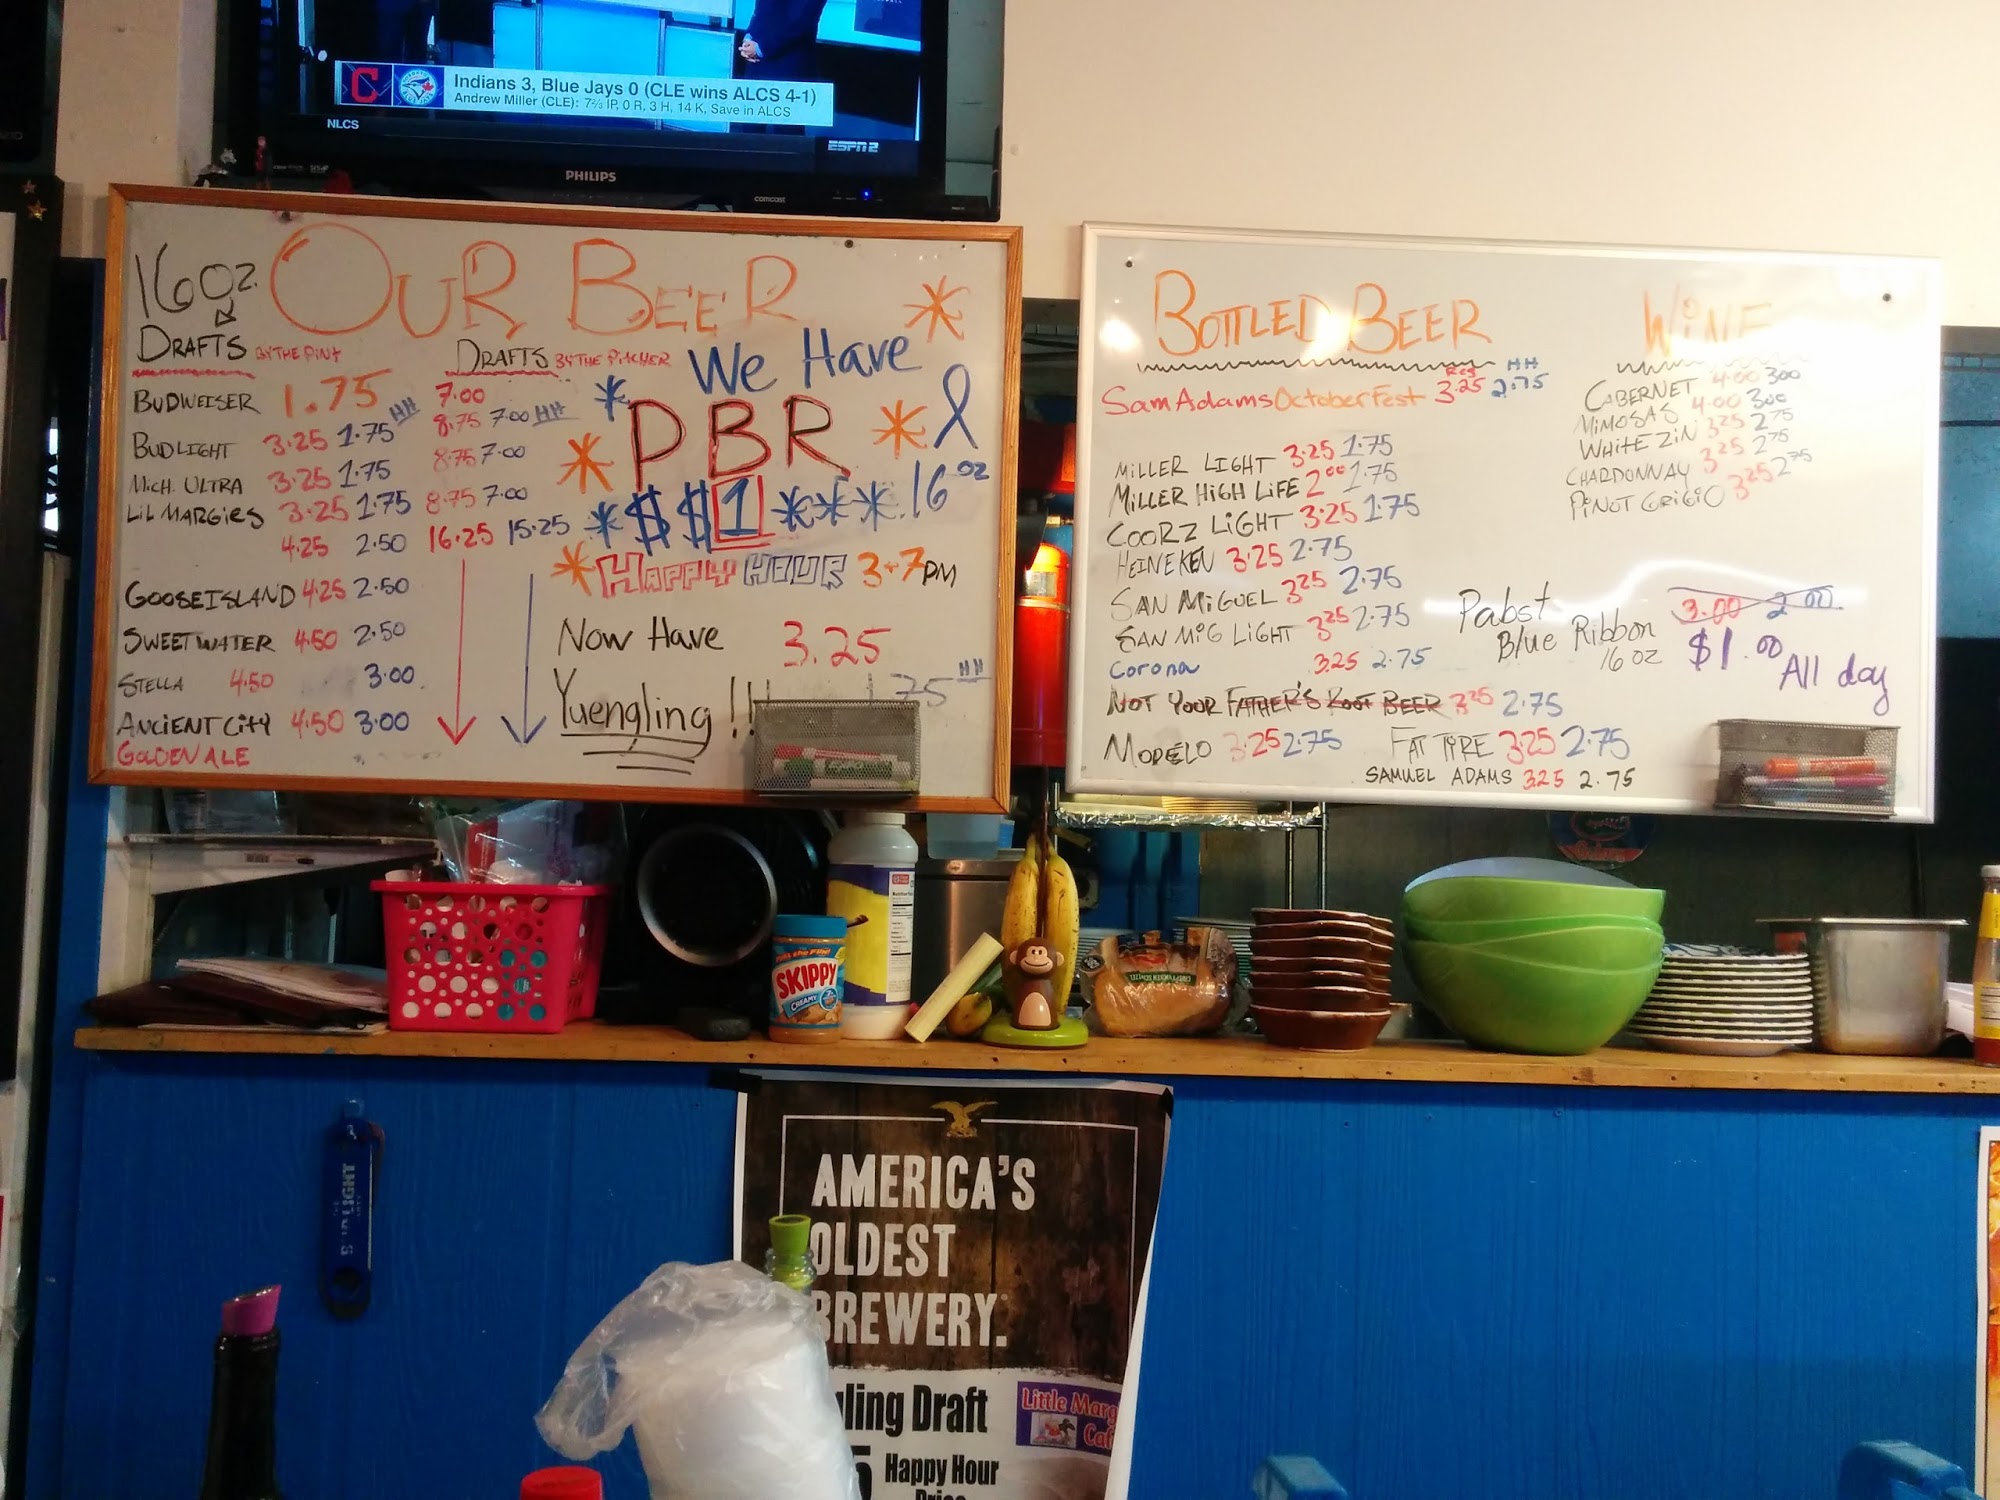 Indians 3, Blue Jays 0 (CLE wins ALCS 4-1)
Andrew Miller (CLE): 7⅔ IP, 0 R, 3 H, 14 K, Save in ALCS
NLCS
ESPN2
PHILIPS
comcast
16 OZ. OUR BEER
DRAFTS BY THE PINT
BUDWEISER 1.75
BUDLIGHT 3.25 1.75 HH
MICH. ULTRA 3.25 1.75
LIL MARGIES 3.25 1.75
4.25 2.50
GOOSE ISLAND 4.25 2.50
SWEETWATER 4.50 2.50
STELLA 4.50 3.00
ANCIENT CITY 4.50 3.00
GOLDEN ALE
DRAFTS BY THE PITCHER
7.00
8.75 7.00 HH
8.75 7.00
8.75 7.00
16.25 15.25
We Have
PBR
$$1 16 OZ
HAPPY HOUR 3-7PM
Now Have 3.25
Yuengling !! 1.75 HH
BOTTLED BEER
Reg HH
Sam Adams OctoberFest 3.25 2.75
MILLER LIGHT 3.25 1.75
MILLER HIGH LIFE 2.00 1.75
COORZ LIGHT 3.25 1.75
HEINEKEN 3.25 2.75
SAN MIGUEL 3.25 2.75
SAN MIG LIGHT 3.25 2.75
Corona 3.25 2.75
NOT YOUR FATHER'S ROOT BEER 3.25 2.75
MODELO 3.25 2.75
FAT TIRE 3.25 2.75
SAMUEL ADAMS 3.25 2.75
WINE
CABERNET 4.00 3.00
MIMOSAS 4.00 3.00
WHITE ZIN 3.25 2.75
CHARDONNAY 3.25 2.75
PINOT GRIGIO 3.25 2.75
Pabst 3.00 2.00
Blue Ribbon $1.00
16 OZ All day
SKIPPY
CREAMY
LIGHT
AMERICA'S
OLDEST
BREWERY.
ling Draft
5 Happy Hour
Little Marg
Caf